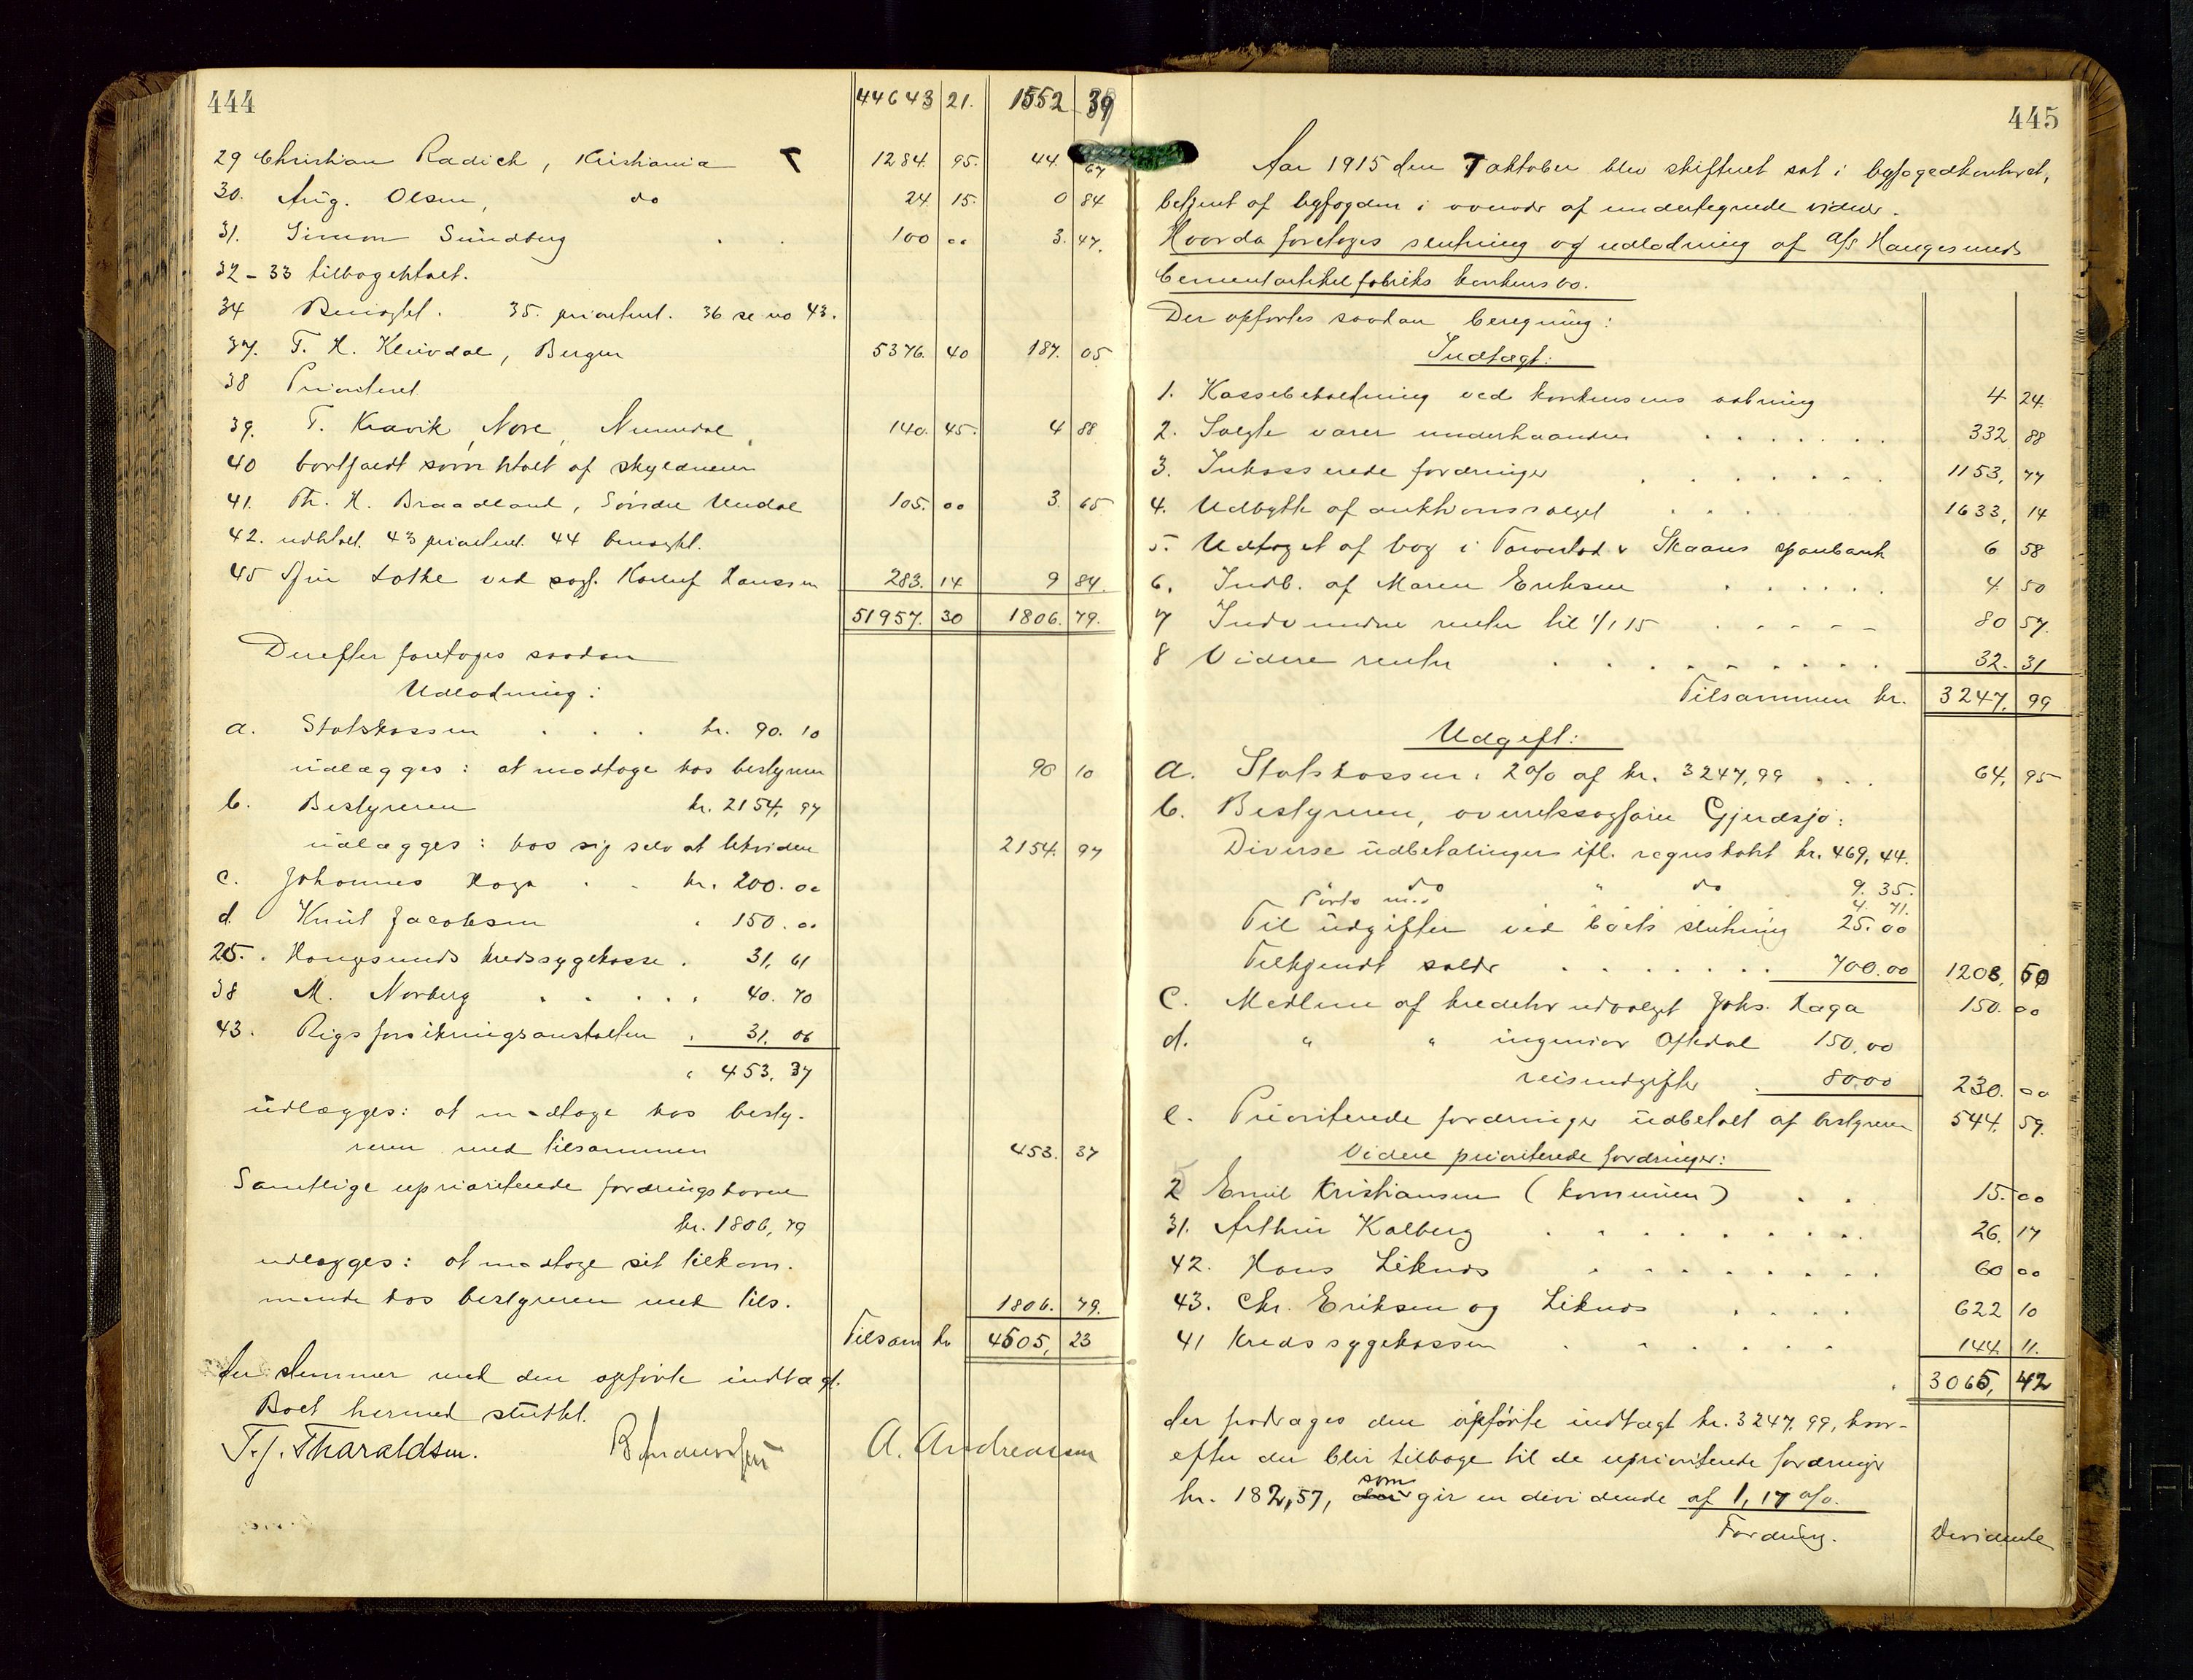 444
44643 21. 1552 39
29 Christian Radich, Kristiania 1284. 95. 44. 67
30. Aug. Olsen, do 24 15. 0 84
31. Simon Sundberg . . 100 00 3. 47.
32-33 tilbagekaldt.
34 Benægtet. 35. prioritert. 36 se no 43.
37. T. H. Kleivdal, Bergen 5376. 40 187. 05
38 Prioritert
39. T. Kravik, Nore, Numedal 140. 45. 4 88
40 bortfaldt som betalt af skyldneren
41. Th. H. Braadland, Søndre Undal 105. 00 3. 65
42. udbetalt. 43 prioritert. 44 benægtet.
45 Lothe ved sagf. Hanssen 283. 14 9 84.
51957. 30 1806. 79.
Derefter foretoges saadan
Udlodning:
a. Statskassen . . . kr. 90. 10
udlægges: at modtage hos bestyreren 90 10
b. Bestyreren kr. 2154, 97
udlægges: hos sig selv at likvidere 2154. 97
c. Johannes Haga . . kr. 200. 00
d. Knut Jacobsen 150. 00
25. Haugesunds kredssygekasse . 31, 61
38 M. Norberg . . . . . 40. 70
43. Rigsforsikringsanstalten 31, 06
" 453, 37
udlægges: at modtage hos besty-
reren med tilsammen 453. 37
Samtlige uprioriterede fordringshavere
kr. 1806, 79
udlægges: at modtage sit tilkom-
mende hos bestyreren med tils. 1806. 79.
Tilsam kr 4505, 23
der stemmer med den opførte indtægt.
Boet hermed sluttet.
T. J. Tharaldsen. A. Andreassen
445
Aar 1915 den 7 oktober blev skifteret sat i byfogedkontoret,
betjent af byfogden i overvær af undertegnede vidner.
Hvorda foretoges slutning og udlodning af A/S Haugesunds
Cementartikelfabriks konkursbo.
Der opførtes saadan beregning:
Indtægt:
1. Kassebeholdning ved konkursens aabning 4 24.
2. Solgte varer underhaanden . . . . . . . 332 88
3. Inkasserede fordringer . . . . . . . 1153, 77
4. Udbytte af auktionssalget . . . . 1633, 14
5. Udtaget af bog i Torvestad & Skaare sparebank 6 58
6. Indb. af Maren Eriksen . . . . . 4 50
7 Indvundne renter til 1/1 15 . . . . . 80 57.
8 Videre renter . . . . . . . . . 32. 31
Tilsammen kr. 3247, 99
Udgift:
a. Statskassen: 2% af kr. 3247,99 . . . 64, 95
b. Bestyreren, overretssagfører Gjerdsjø:
Diverse udbetalinger ifl. regnskabet kr. 469, 44.
do " do 9. 35.
Porto m.v. 4. 71.
Til udgifter ved boets slutning 25.00
Tilkjendt salær . . . . . . . 700.00 1208, 50
c. Medlem af kreditorudvalget Johs. Haga 150. 00
d. " " ingeniør Oftedal 150,00
reiseudgifter . 80.00 230. 00
e. Prioriterede fordringer udbetalt af bestyreren 544, 59.
Videre prioriterede fordringer:
2 Emil Kristiansen (kommunen) . . 15.00
31. Arthur Kalberg . . . . . . . . 26, 17
42. Hans Liknes . . . . . . . . 60 00
43. Chr. Eriksen og Liknes . . . . 622 10
41 Kredssygekassen . . . . . . 144. 11.
3065, 42
der fradrages den opførte indtægt kr. 3247.99, hvor-
efter der blir tilbage til de uprioriterede fordringer
som
kr. 182,57, gir en dividende af 1,17 %.
Fordring. Dividende